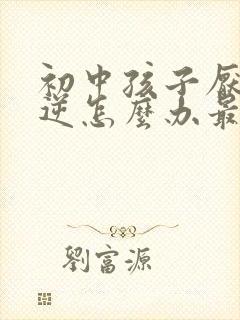 初中孩子厌
逆怎麽办最
劉富源